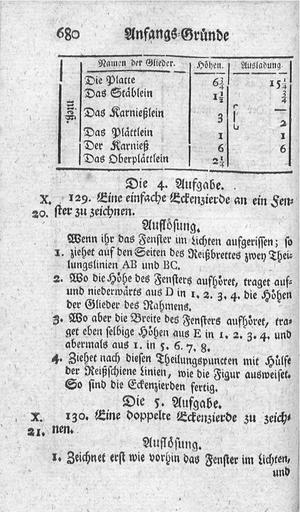 680 Anfangs-Gründe
Namen der Glieder. Höhen. Ausladung.
Die Platte 6 3/4 15 1/4
Das Stäblein 1 1/2
Das Karnießlein 3 2
Das Plättlein 1
Der Karnieß 6 6
Das Oberplättlein 2 1/4
Die 4. Aufgabe.
X. 129. Eine einfache Eckenzierde an ein Fen-
20. ster zu zeichnen.
Auflösung.
Wenn ihr das Fenster im Lichten aufgerissen; so
1. ziehet auf den Seiten des Reißbrettes zwey Thei-
lungslinien AB und BC.
2. Wo die Höhe des Fensters aufhöret, traget auf-
und niederwärts aus D in 1. 2. 3. 4. die Höhen
der Glieder des Rahmens.
3. Wo aber die Breite des Fensters aufhöret, tra-
get eben selbige Höhen aus E in 1. 2. 3. 4. und
abermals aus 1. in 5. 6. 7. 8.
4. Ziehet nach diesen Theilungspuncten mit Hülfe
der Reißschiene Linien, wie die Figur ausweiset.
So sind die Eckenzierden fertig.
Die 5. Aufgabe.
X. 130. Eine doppelte Eckenzierde zu zeich-
21. nen.
Auflösung.
1. Zeichnet erst wie vorhin das Fenster im Lichten,
und